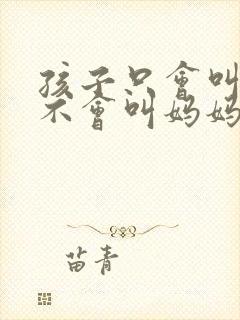 孩子只會叫
不會叫媽媽
苗青